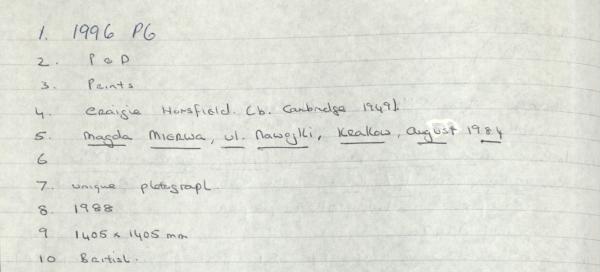 1. 1996 PG
2. P & D
3. Prints
4. Craigie Horsfield. (b. Cambridge 1949).
5. Magda MIERWA, ul. Nawojki, Krakow, August 1984
6
7. unique photograph.
8. 1988
9 1405 x 1405 mm
10 British.